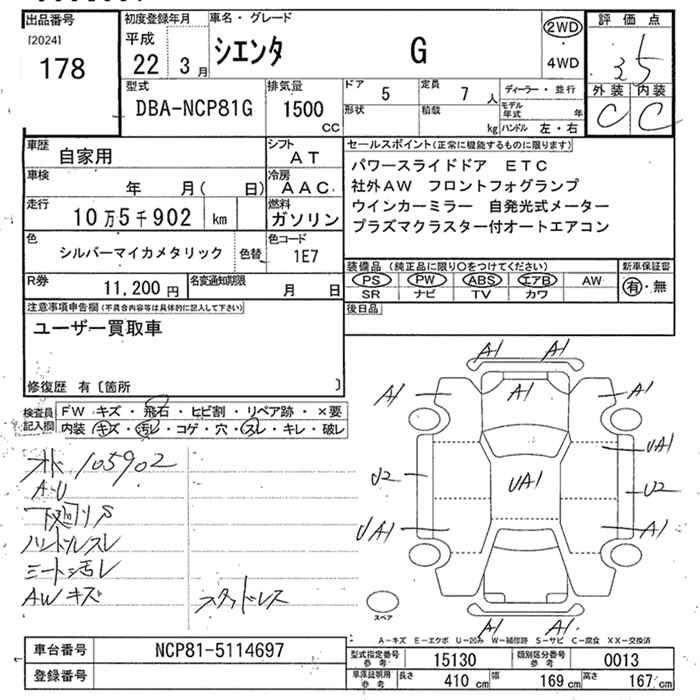 出品番号
[2024]
178
初度登録年月
平成
22 3月
車名・グレード
シエンタ G
2WD
・
4WD
評価点
3.5
外装 内装
C C
型式
DBA-NCP81G
排気量
1500
CC
ドア
5
定員
7 人
形状
積載
kg
ディーラー・並行
モデル年式 年
ハンドル 左・右
車歴
自家用
シフト
AT
車検
年 月( 日)
冷房
AAC
走行
10万5千902 km
燃料
ガソリン
色
シルバーマイカメタリック
色替
色コード
1E7
R券
11,200 円
名変通知期限
月 日
セールスポイント(正常に機能するものに限ります)
パワースライドドア ETC
社外AW フロントフォグランプ
ウインカーミラー 自発光式メーター
プラズマクラスター付オートエアコン
装備品(純正品に限り○をつけてください)
PS PW ABS エアB AW
SR ナビ TV カワ
新車保証書
有・無
後日品
注意事項申告欄(不具合内容等は具体的に記入して下さい)
ユーザー買取車
修復歴 有〔箇所 〕
検査員記入欄
FW キズ・飛石・ヒビ割・リペア跡・×要
内装・キズ・汚レ・コゲ・穴・スレ・キレ・破レ
オド 105902
A・U
下廻リサ
ハンドルスレ
シート汚レ
AWキズ
スタッドレス
A1 A1
A1 A1 A1
UA1
U2 UA1 U2
UA1 A1
A1 A1
スペア
A-キズ E-エクボ U-凹み W-補修跡 S-サビ C-腐食 XX-交換済
車台番号
NCP81-5114697
登録番号
型式指定番号
参考
15130
類別区分番号
参考
0013
車庫証明用
参考
長さ 410 cm 幅 169 cm 高さ 167 cm